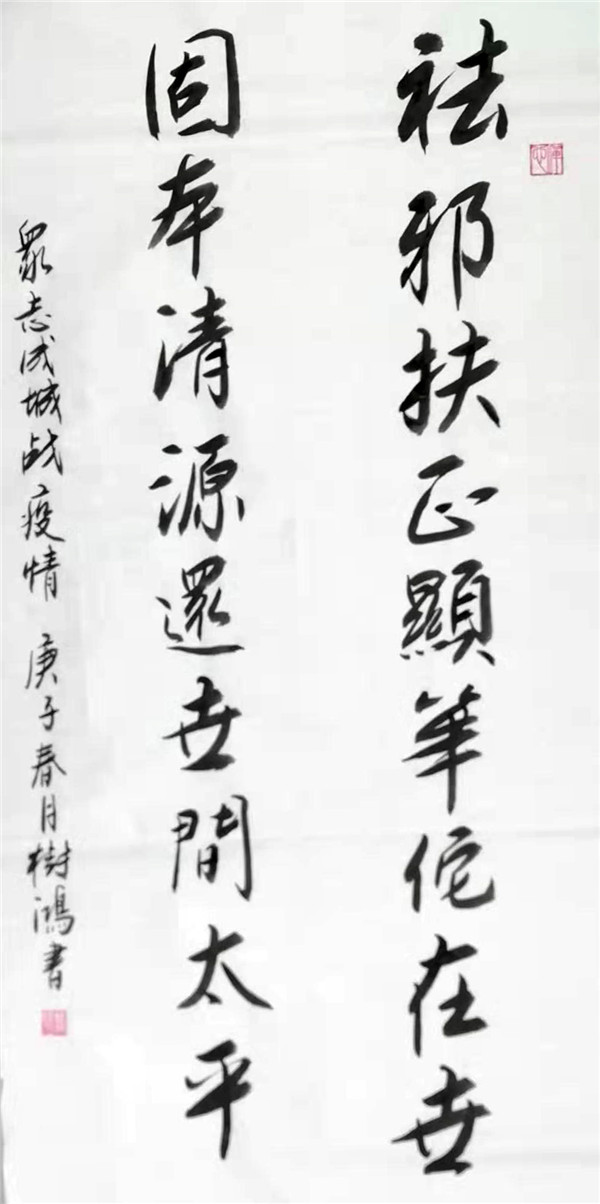 祛邪扶正顯華佗在世
固本清源還世間太平
眾志成城战疫情 庚子春月樹鴻書